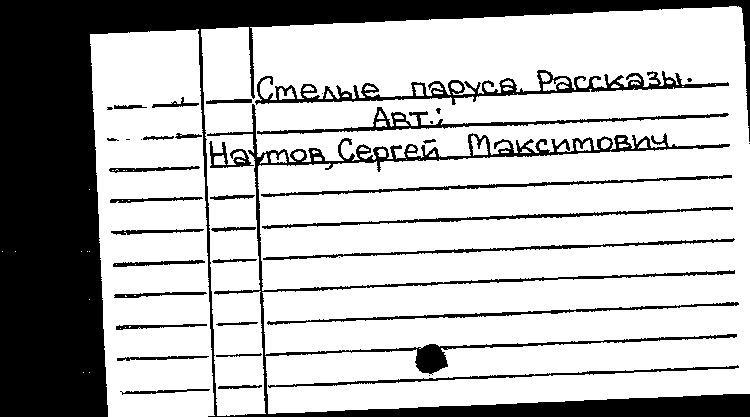 Смелые паруса. Рассказы.
Авт.:
Наумов, Сергей Максимович.